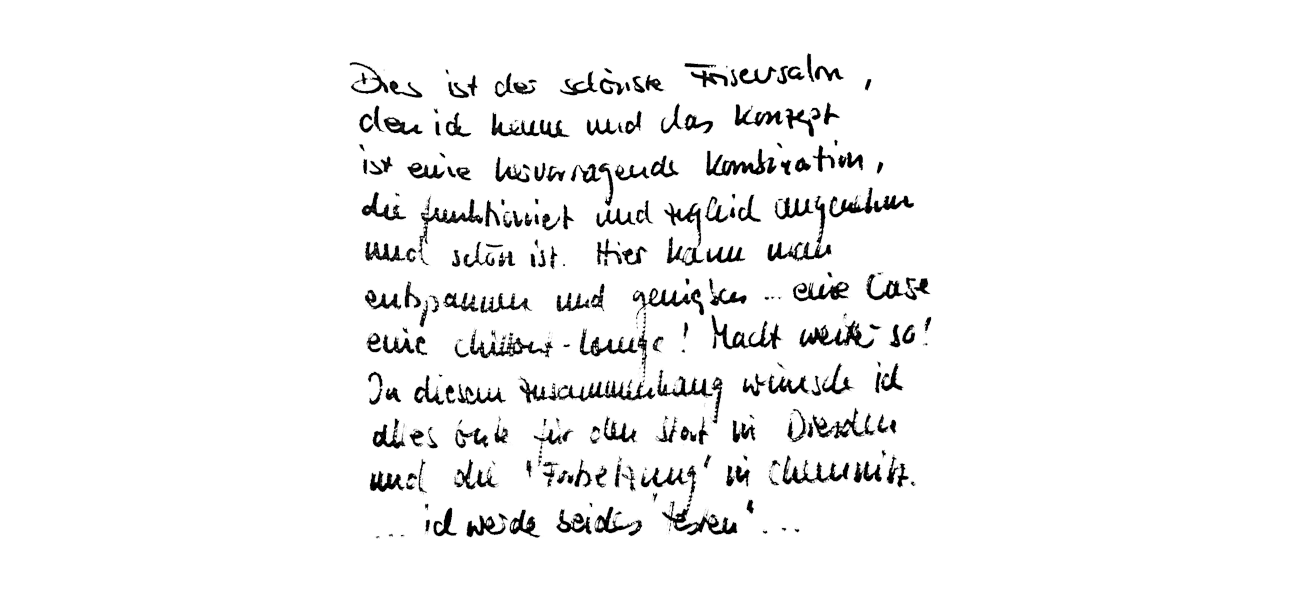 Dies ist der schönste Friseursalon,
den ich kenne und das Konzept
ist eine hervorragende Kombination,
die funktioniert und zugleich angenehm
und schön ist. Hier kann man
entspannen und genießen ... eine Oase
eine chillout-lounge! Macht weiter so!
In diesem Zusammenhang wünsche ich
alles Gute für den Start in Dresden
und die "Fortsetzung" in Chemnitz.
... ich werde beides "testen" ...